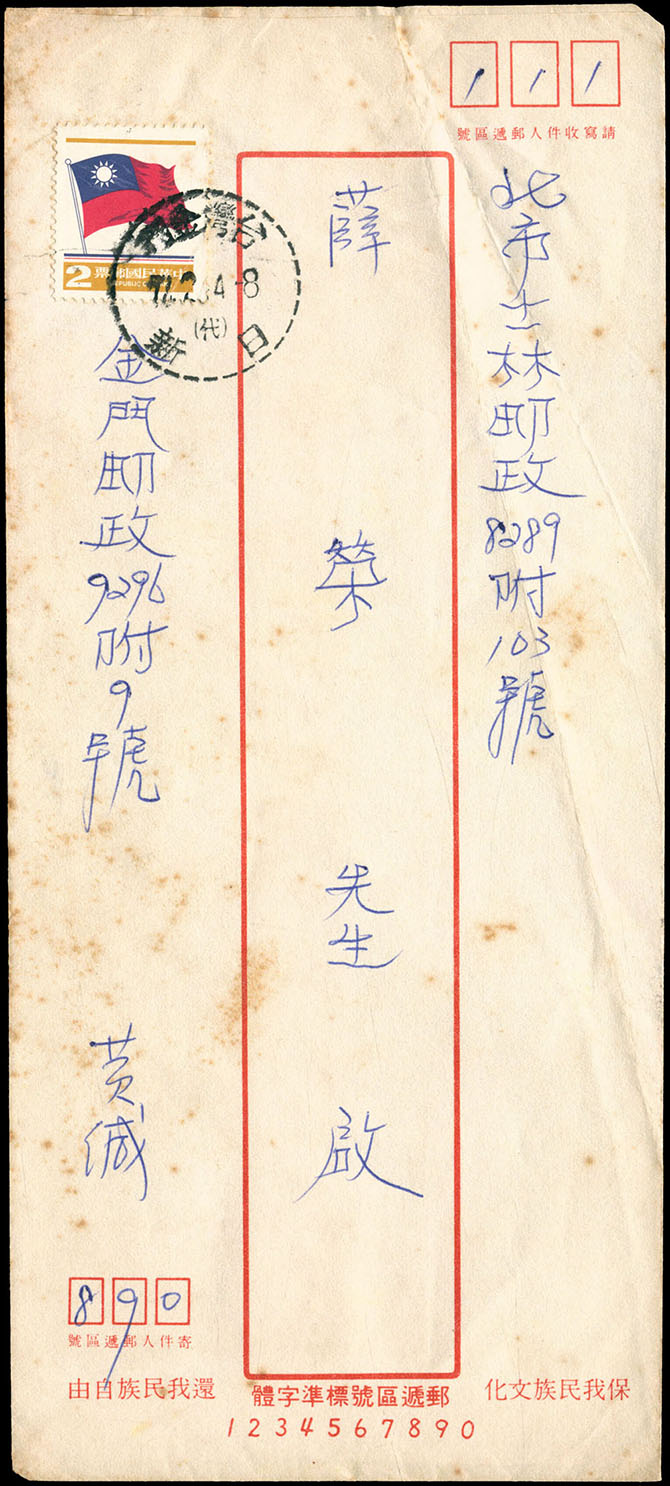 1 1 1
請寫收件人郵遞區號
北市士林邮政8289附103號
薛榮先生啟
中華民國郵票
2
台灣
(代)
金門邮政9296附9號
黃緘
890
寄件人郵遞區號
保我民族文化
郵遞區號標準字體
還我民族自由
1234567890